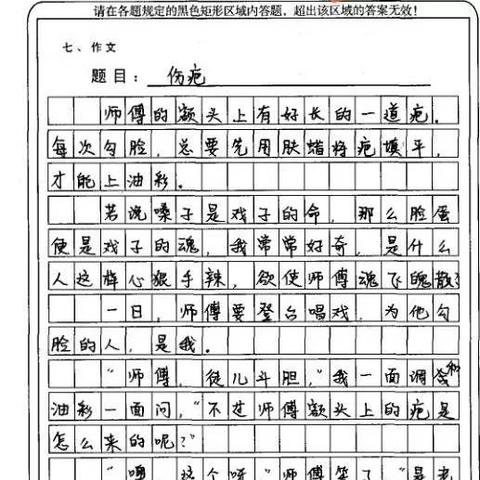 请在各题规定的黑色矩形区域内答题，超出该区域的答案无效！
七、作文
题目：伤疤
师傅的额头上有好长的一道疤。
每次勾脸，总要先用肤蜡将疤填平，
才能上油彩。
若说嗓子是戏子的命，那么脸蛋
便是戏子的魂，我常常好奇，是什么
人这样心狠手辣，欲使师傅魂飞魄散？
一日，师傅要登台唱戏，为他勾
脸的人，是我。
“师傅，徒儿斗胆，”我一面调和
油彩一面问，“不过师傅额头上的疤是
怎么来的呢？”
“噢，这个呀”师傅笑了，“是老